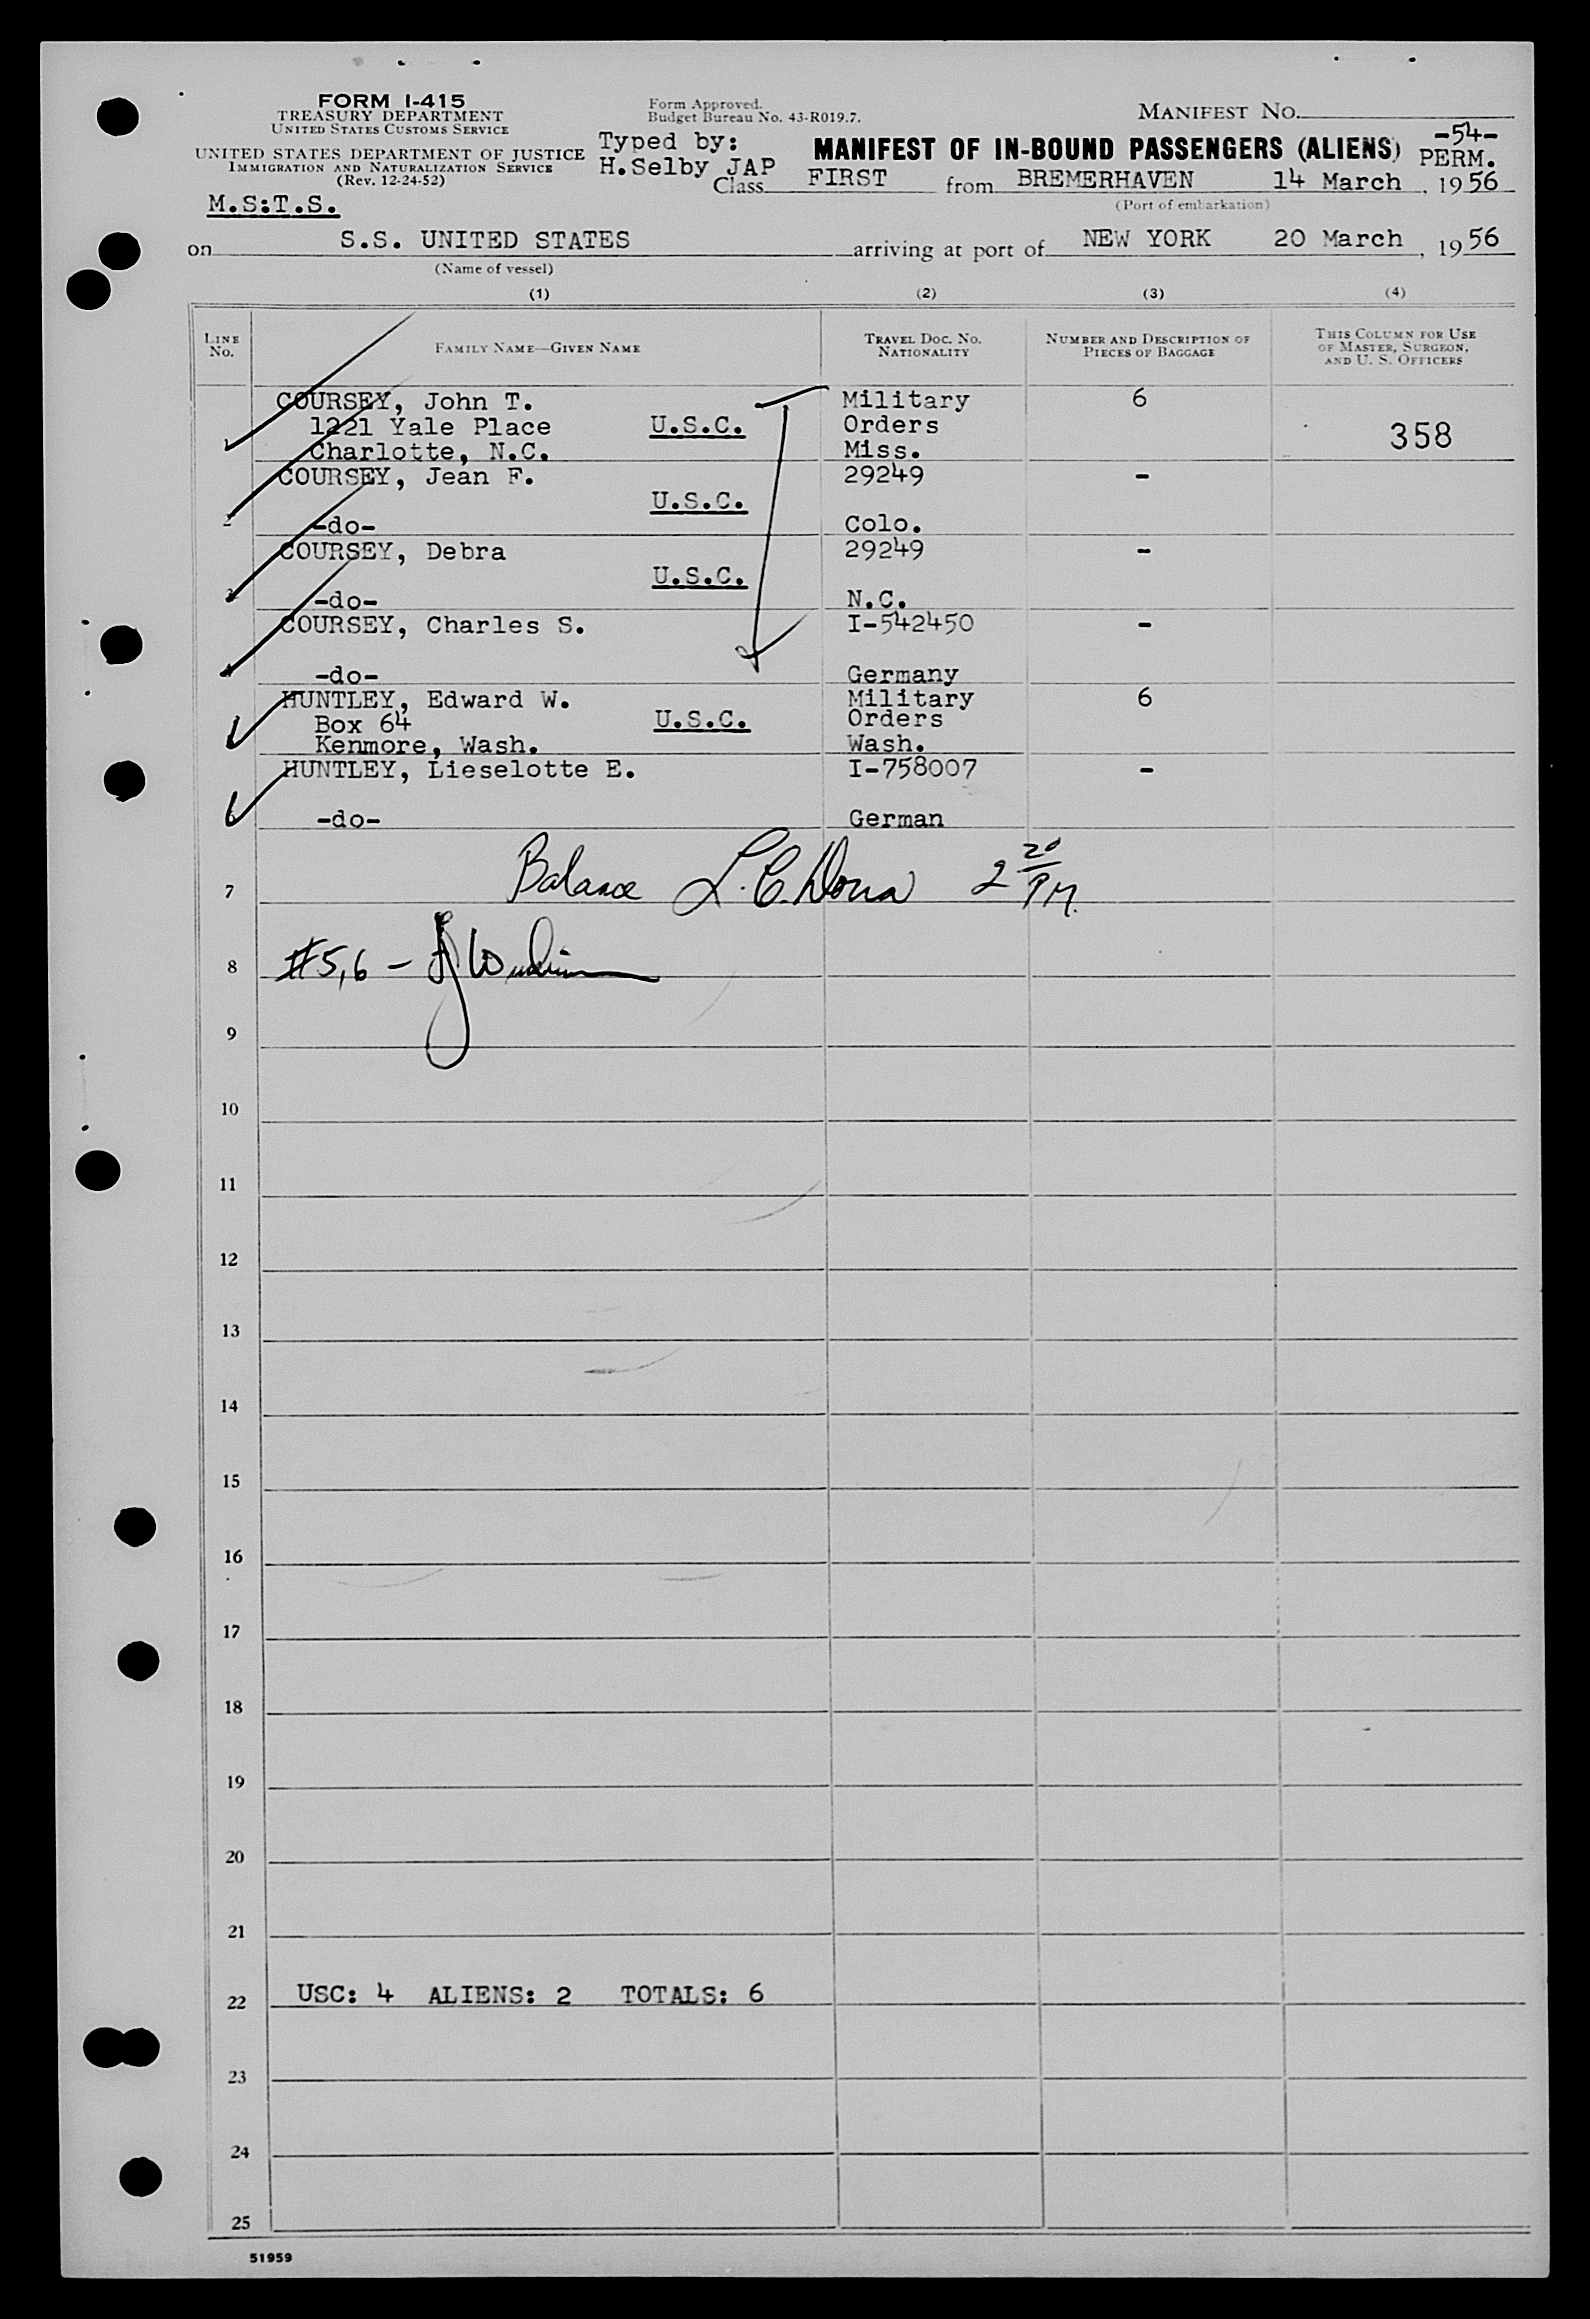 FORM I-415
TREASURY DEPARTMENT
UNITED STATES CUSTOMS SERVICE
UNITED STATES DEPARTMENT OF JUSTICE
IMMIGRATION AND NATURALIZATION SERVICE
(Rev. 12-24-52)
M.S:T.S.
Form Approved.
Budget Bureau No. 43-R019.7.
Typed by:
H.Selby JAP
MANIFEST NO.
-54-
MANIFEST OF IN-BOUND PASSENGERS (ALIENS) PERM.
Class FIRST from BREMERHAVEN 14 March, 1956
(Port of embarkation)
on S.S. UNITED STATES arriving at port of NEW YORK 20 March, 1956
(Name of vessel)
(1) (2) (3) (4)
LINE NO. FAMILY NAME—GIVEN NAME TRAVEL DOC. NO. NATIONALITY NUMBER AND DESCRIPTION OF PIECES OF BAGGAGE THIS COLUMN FOR USE OF MASTER, SURGEON, AND U. S. OFFICERS
COURSEY, John T. Military 6
1221 Yale Place U.S.C. Orders 358
1 Charlotte, N.C. Miss.
COURSEY, Jean F. 29249 -
U.S.C.
2 -do- Colo.
COURSEY, Debra 29249 -
U.S.C.
3 -do- N.C.
COURSEY, Charles S. I-542450 -
4 -do- Germany
HUNTLEY, Edward W. Military 6
Box 64 U.S.C. Orders
Kenmore, Wash. Wash.
HUNTLEY, Lieselotte E. I-758007 -
6 -do- German
7 Balance L.C. 2 20 PM.
8 #5,6 -
9
10
11
12
13
14
15
16
17
18
19
20
21
22 USC: 4 ALIENS: 2 TOTALS: 6
23
24
25
51959